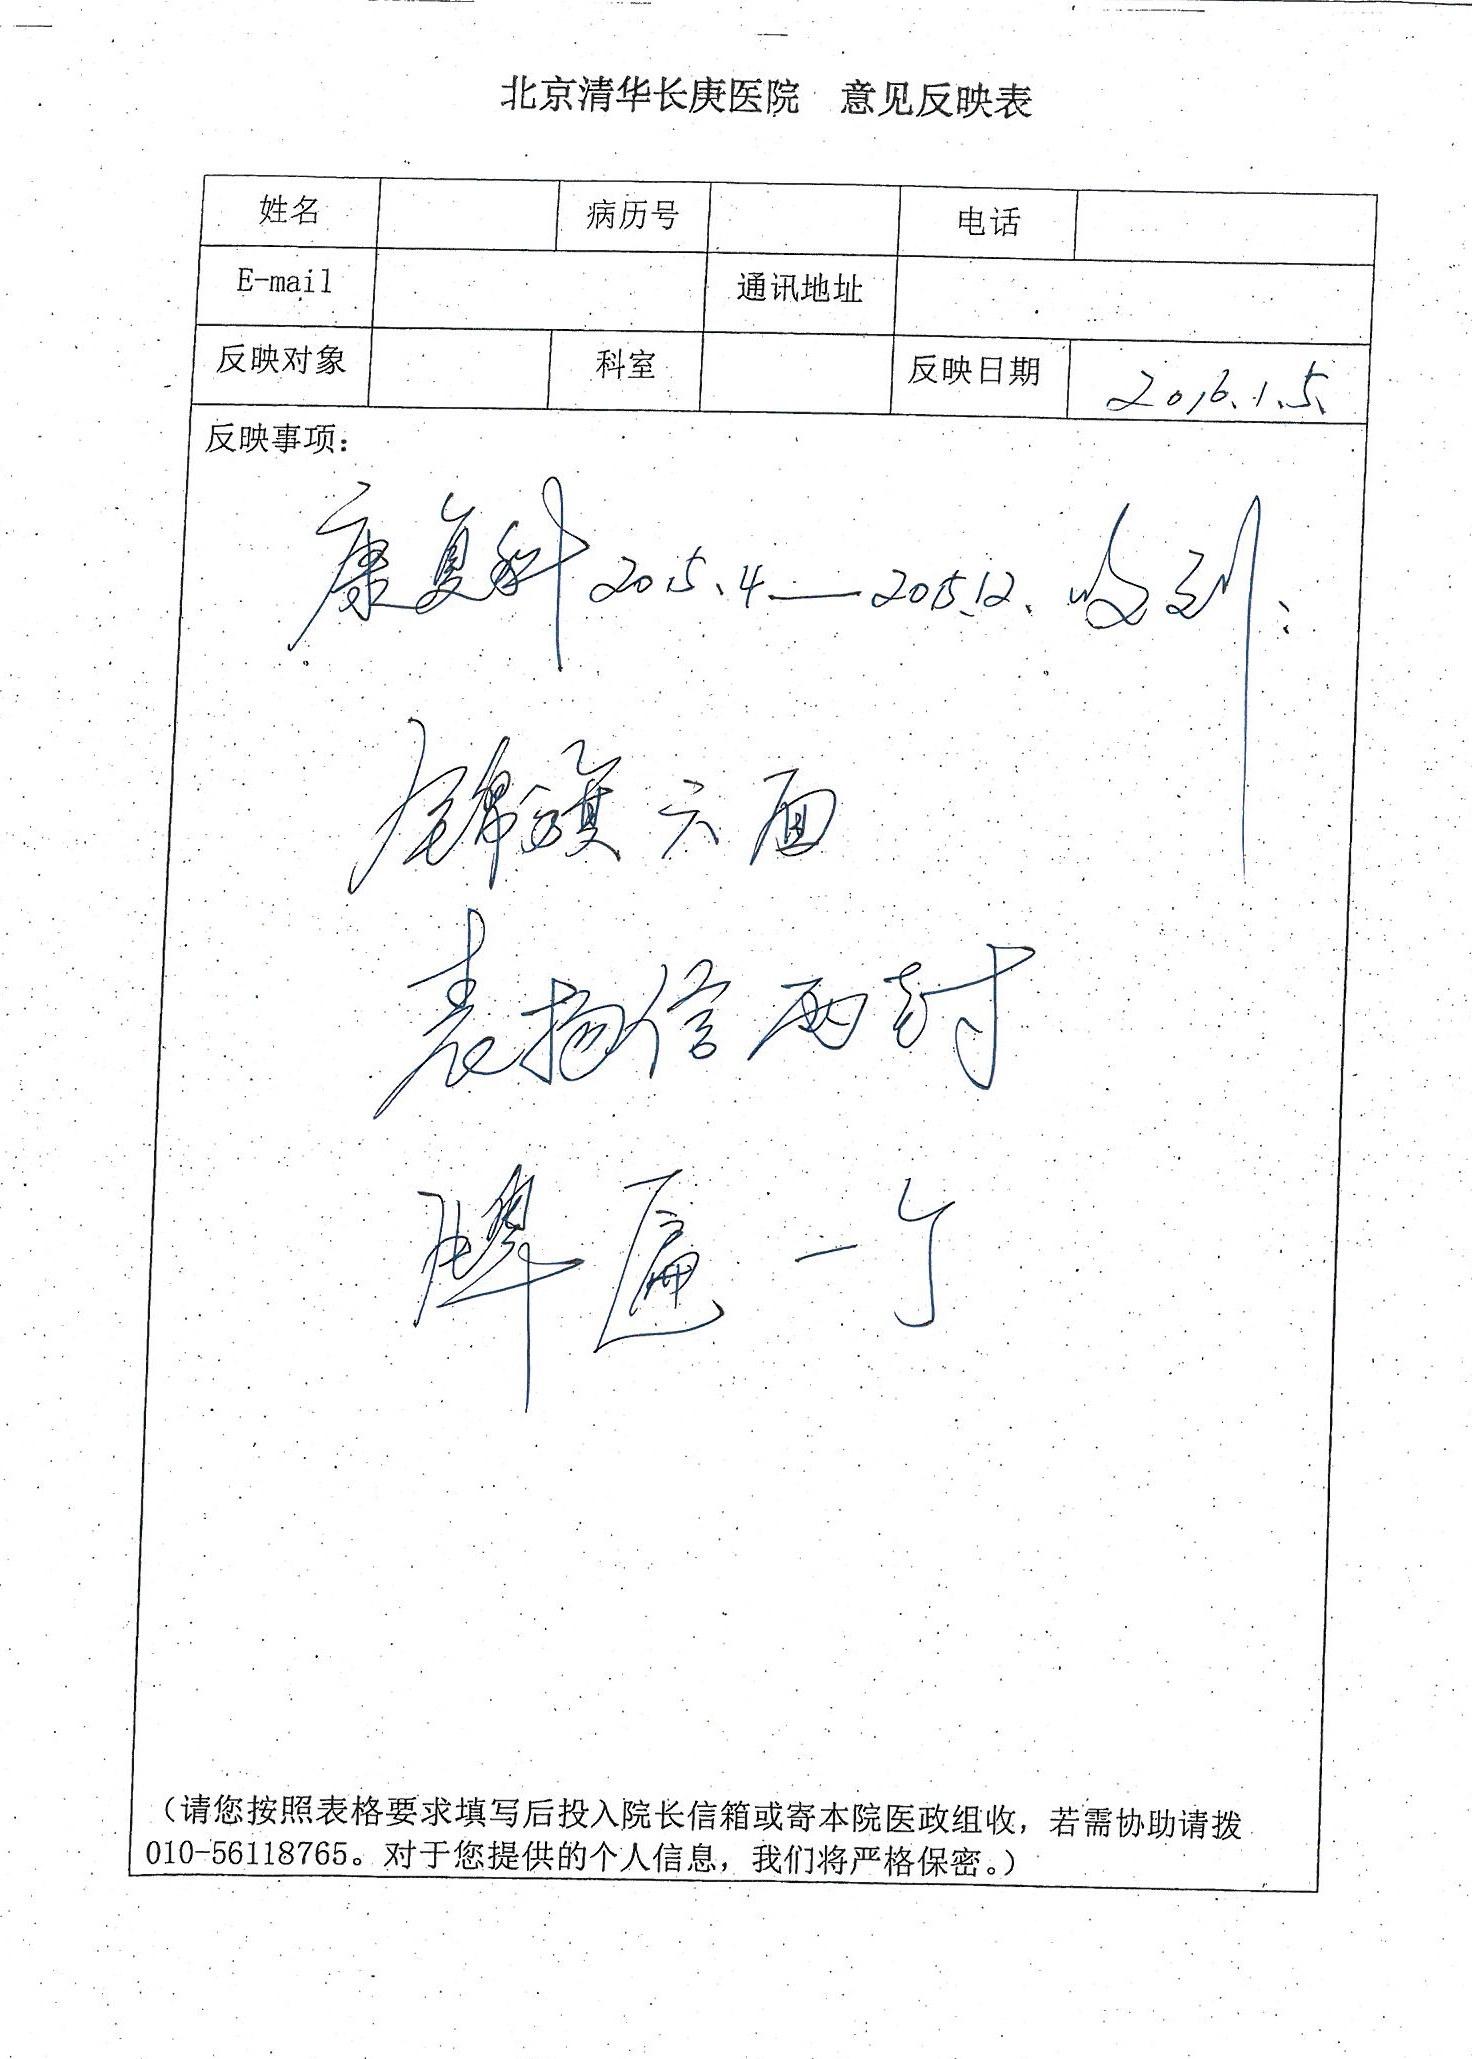 北京清华长庚医院 意见反映表
姓名 病历号 电话
E-mail 通讯地址
反映对象 科室 反映日期 2016.1.5.
反映事项：
康复科2015.4—2015.12.收到：
锦旗六面
表扬信两封
牌匾一个
（请您按照表格要求填写后投入院长信箱或寄本院医政组收，若需协助请拨
010-56118765。对于您提供的个人信息，我们将严格保密。）